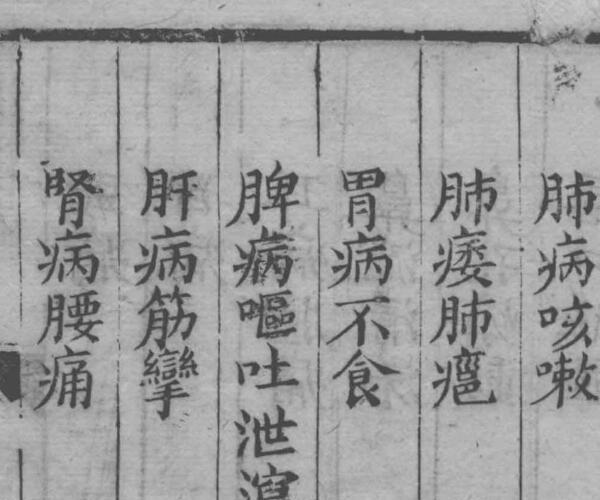 肺病咳嗽
肺痿肺㿈
胃病不食
脾病嘔吐泄
肝病筋攣
腎病腰痛